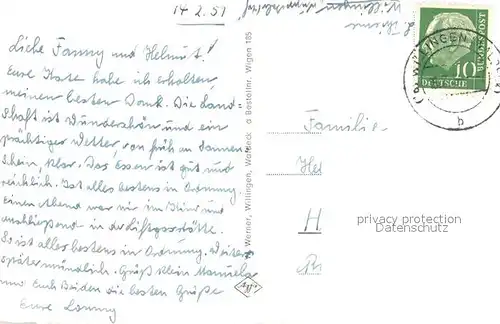 14.2.57
Liebe Fanny und Helmut!
Eure Karte habe ich erhalten,
meinen besten Dank. Die Land-
schaft ist wunderschön und ein
prächtiger Wetter, von früh an Sonnen
schein, klar. Das Essen ist gut und
reichlich. Ist alles bestens in Ordnung.
Einen Abend war wir im Kino und
anschließend in der
So ist alles bestens in Ordnung. Weiteres
später mündlich. Grüß klein Manuela
und Euch Beiden die besten Grüße
Eure
Werner, Willingen, Waldeck o Bestellnr. Wigen 185
WILLINGEN
b
10
DEUTSCHE
BUNDESPOST
Familie
Hel
H
privacy protection
Datenschutz